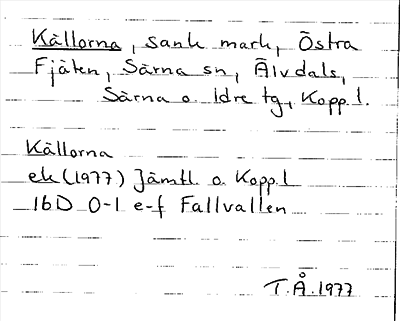 Källorna, sank mark, Östra
Fjäten, Särna sn, Älvdals,
Särna o. Idre tg, Kopp. l.
Källorna
ek (1977) Jämtl. o. Kopp. l
16D 0-1 e-f Fallvallen
T.Å. 1977